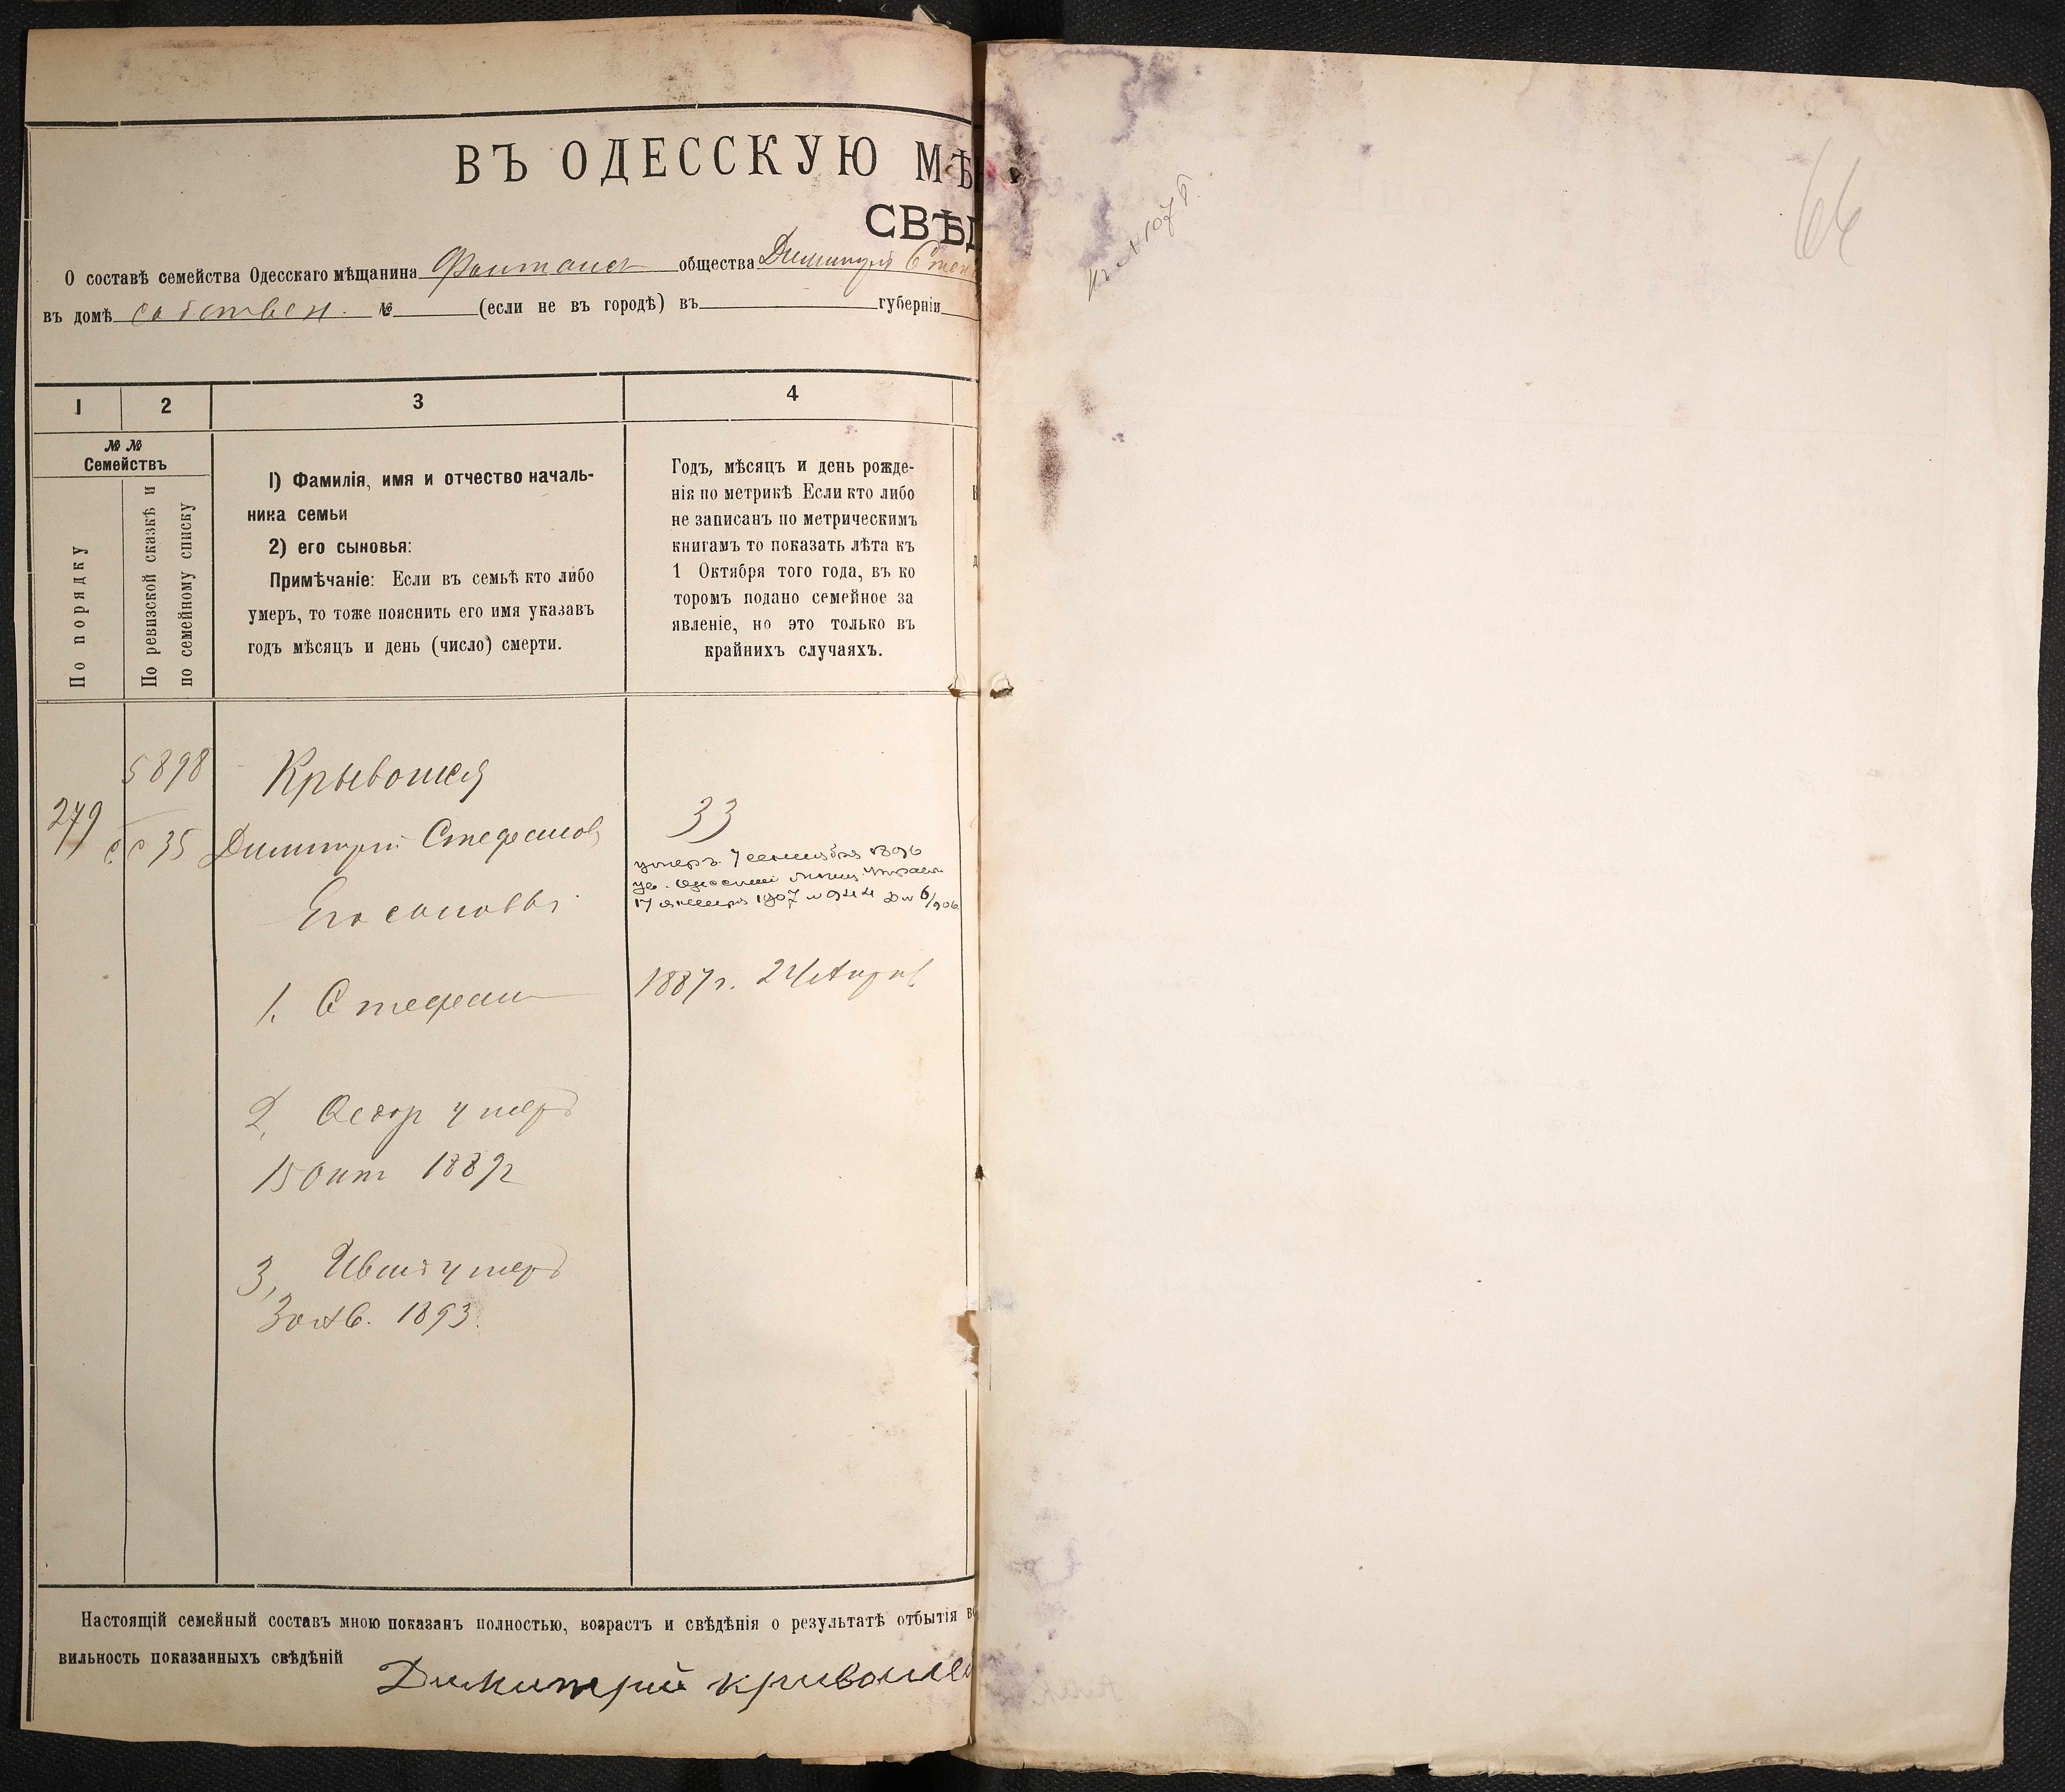 ВЪ ОДЕССКУЮ МѢ
СВѢД
О составѣ семейства Одесскаго мѣщанина Фонтанск общества Димитрій Стеф
въ домѣ собствен. № (если не въ городѣ) въ губерніи
1 2 3 4
№ № Семействъ
По порядку
По ревизской сказкѣ и
по семейному списку
1) Фамилія, имя и отчество началь-
ника семьи
2) его сыновья:
Примѣчаніе: Если въ семьѣ кто либо
умеръ, то тоже пояснить его имя указавъ
годъ мѣсяцъ и день (число) смерти.
Годъ, мѣсяцъ и день рожде-
нія по метрикѣ Если кто либо
не записанъ по метрическимъ
книгамъ то показать лѣта къ
1 Октября того года, въ ко
торомъ подано семейное за
явленіе, но это только въ
крайнихъ случаяхъ.
279
5898
с с 35
Крывошея
Димитрій Стефанов
33
умеръ 7 сентября 1896
ув. Одесской мѣщ управ
17 января 1907 № 944 Д № 6/906
Его сыновья
1. Стефан 1887 г. 24 Април
2, Федор умеръ
15 Окт 1889 г
3, Иван умеръ
30 Ав. 1893.
Настоящій семейный составъ мною показанъ полностью, возрастъ и свѣдѣнія о результатѣ отбытія в
вильность показанныхъ свѣдѣній
Димитрій кривоше
къ № 107 б.
66